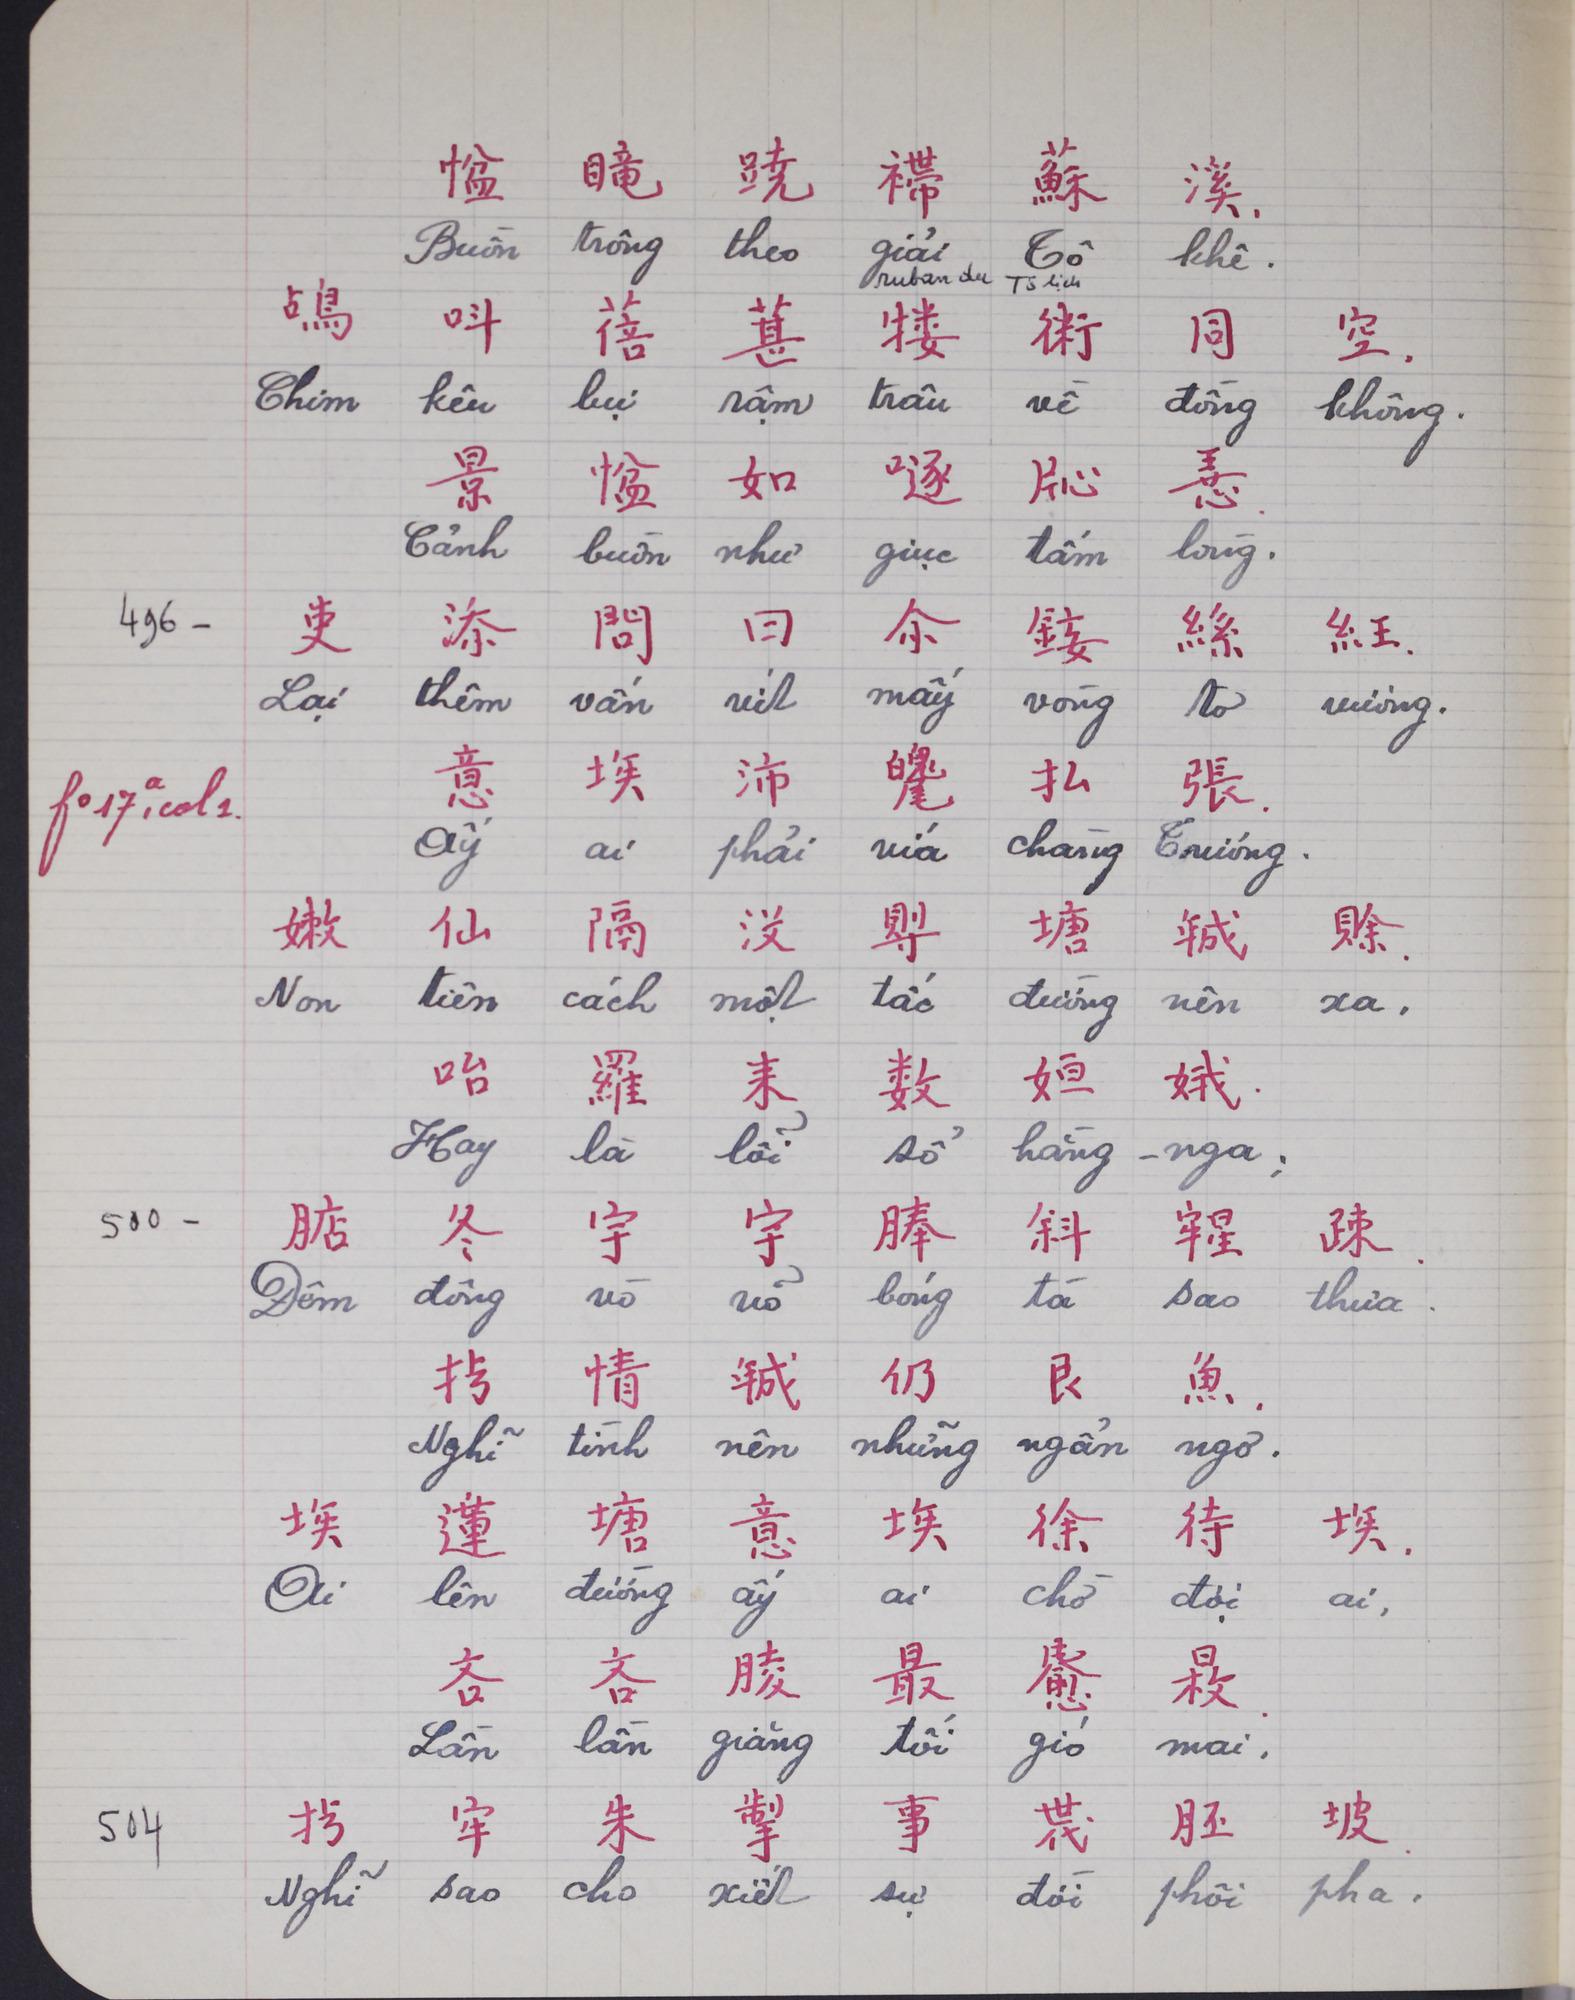 㥪 𥊣 蹺 𧞊 蘇 溪.
Buồn trông theo giải Tô khê.
ruban du Tô lịch
鴣 呌 蓓 葚 𤛠 術 同 空.
Chim kêu bụi rậm trâu về đồng không.
景 㥪 如 𠴓 𢚸 𢙱.
Cảnh buồn như giục tấm lòng.
496 - 吏 添 問 曰 余 鋄 絲 紝.
Lại thêm vấn vít mấy vòng tơ vương.
fº 17ª, col 1. 意 埃 沛 払 張.
Ấy ai phải vía chàng Trương.
嫩 仙 隔 沒 塘 𢧚 賒.
Non tiên cách một tấc đường nên xa.
咍 羅 耒 数 姮 娥.
Hay là lỗi số hằng - nga;
500 - 𣈘 冬 宇 宇 𦢳 斜 𣋀 疎.
Đêm đông vò vỗ bóng tà sao thưa.
𢪀 情 𢧚 仍 艮 魚.
Nghĩ tình nên những ngẩn ngơ.
埃 蓮 塘 意 埃 徐 待 埃.
Ai lên đường ấy ai chờ đợi ai,
吝 吝 𦝄 最 𩙌 𣈕.
Lần lần giăng tối gió mai.
504 𢪀 牢 朱 掣 事 𠁀 胚 坡.
Nghĩ sao cho xiết sự đời phôi pha.